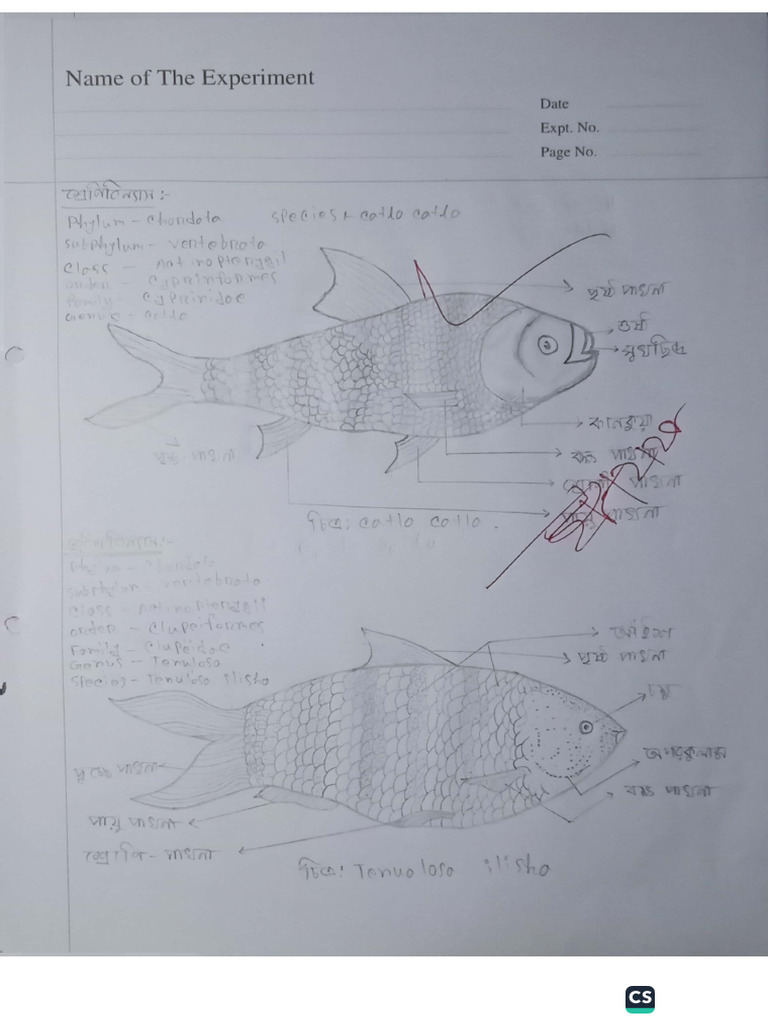 Name of The Experiment
Date
Expt. No.
Page No.
শ্রেণিবিন্যাস:-
Phylum - Chordata
species + catla catla
subphylum - vertebrata
Class - Actinopterygii
order - Cypriniformes
Family - Cyprinidae
Genus - catla
পৃষ্ঠ পাখনা
ওষ্ঠ
মুখছিদ্র
কানকুয়া
পুচ্ছ-পাখনা
বক্ষ পাখনা
শ্রোণী পাখনা
পায়ু পাখনা
চিত্র: catla catla.
শ্রেণিবিন্যাস:-
Phylum - Chordata
subphylum - vertebrata
Class - Actinopterygii
order - Clupeiformes
Family - Clupeidae
Genus - Tenulosa
Species - Tenulosa ilisha
আঁইশ
পৃষ্ঠ পাখনা
পুচ্ছ পাখনা
বক্ষ পাখনা
পায়ু পাখনা
শ্রোণি-পাখনা
চিত্র: Tenualosa ilisha
CS